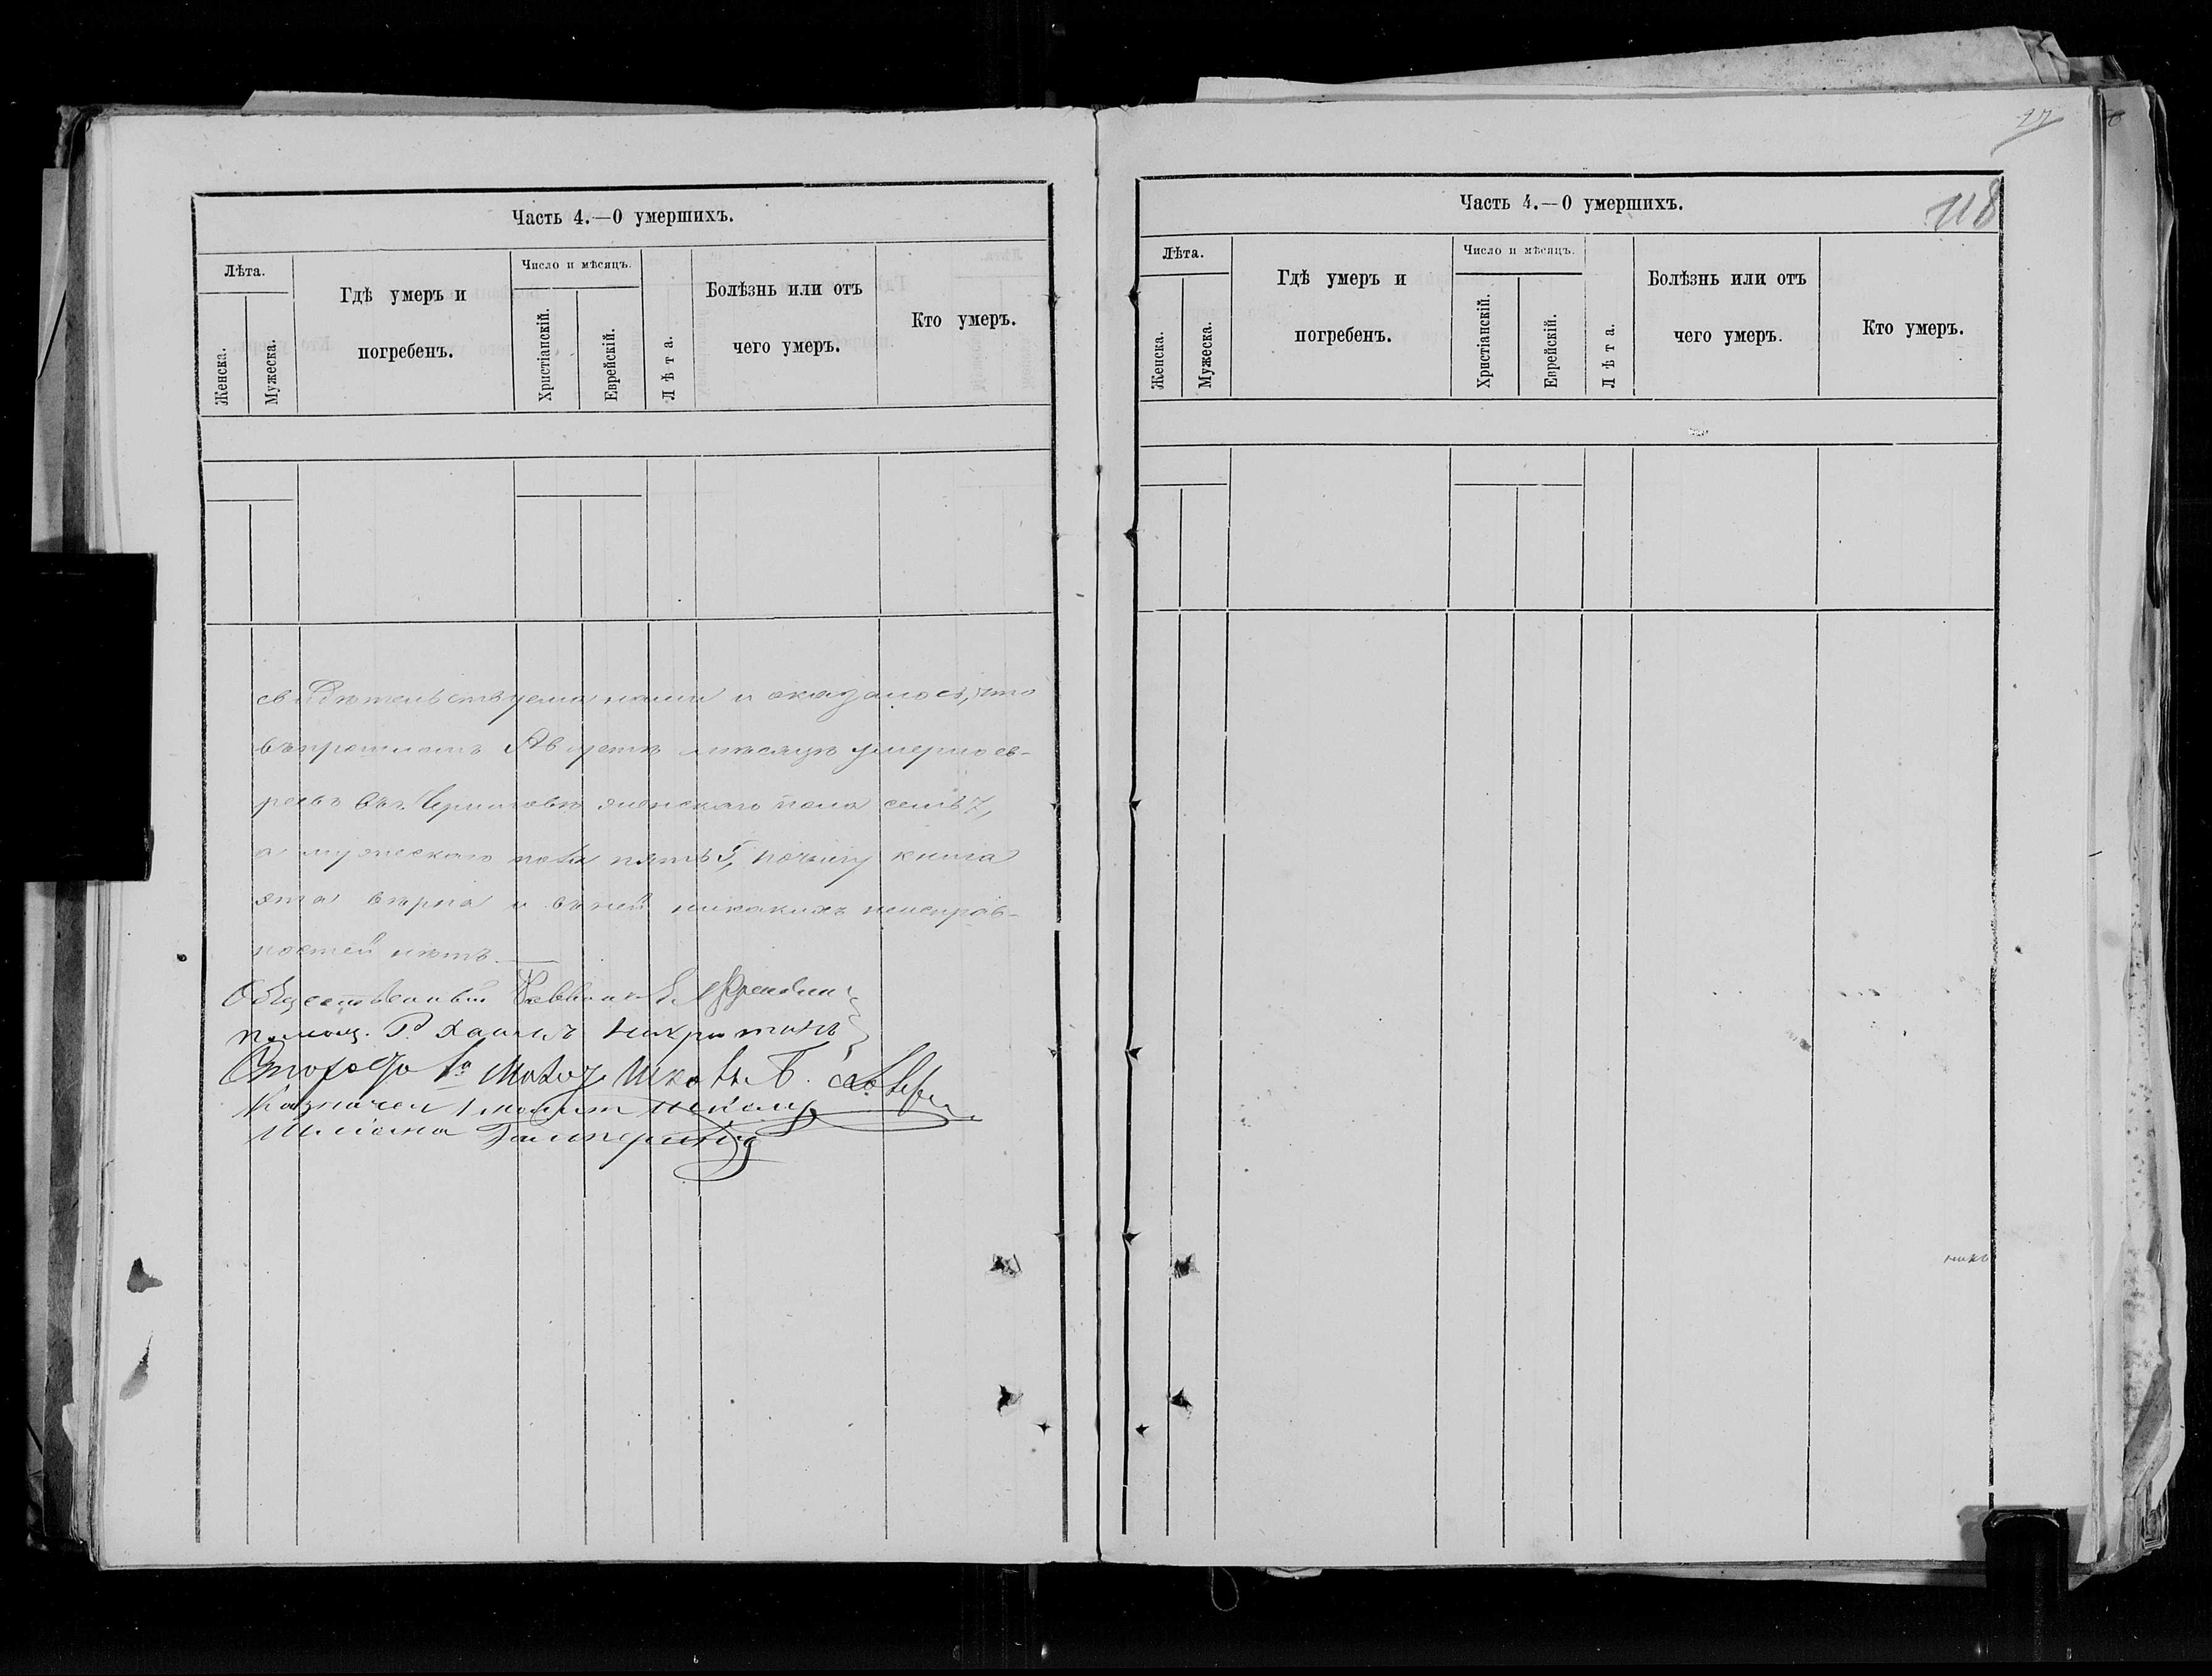 Часть 4.—О умершихъ.
Лѣта.
Женска.
Мужеска.
Гдѣ умеръ и
погребенъ.
Число и мѣсяцъ.
Христіанскій.
Еврейскій.
Лѣта.
Болѣзнь или отъ
чего умеръ.
Кто умеръ.
свидѣтельствуема нами и оказалось, что
въ прошломъ Августѣ мѣсяцѣ умерло ев-
реевъ въ г. Черниговѣ женскаго пола семь 7,
а мужескаго пола пять 5, почему книга
эта вѣрна и въ ней никакихъ неисправ-
ностей нѣтъ.
Общественный Раввинъ
помощ. Р. Хаимъ
Староста
Казначей
27
118
Часть 4.—О умершихъ.
Лѣта.
Женска.
Мужеска.
Гдѣ умеръ и
погребенъ.
Число и мѣсяцъ.
Христіанскій.
Еврейскій.
Лѣта.
Болѣзнь или отъ
чего умеръ.
Кто умеръ.